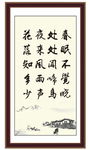 春眠不覺曉
处处闻啼鸟
夜来風雨声
花落知多少